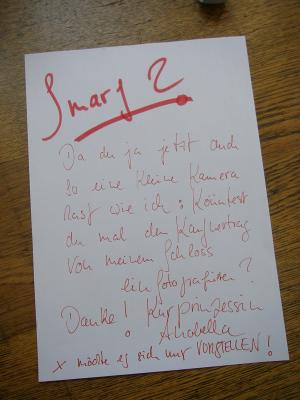 Smarf 2
Da du ja jetzt auch
so eine kleine Kamera
hast wie ich: Könntest
du mal den Kaufvertrag
von meinem Schloss
ein fotografieren?
Danke! Kurprinzessin
Anabella
x möchte es sich nur VORSTELLEN!